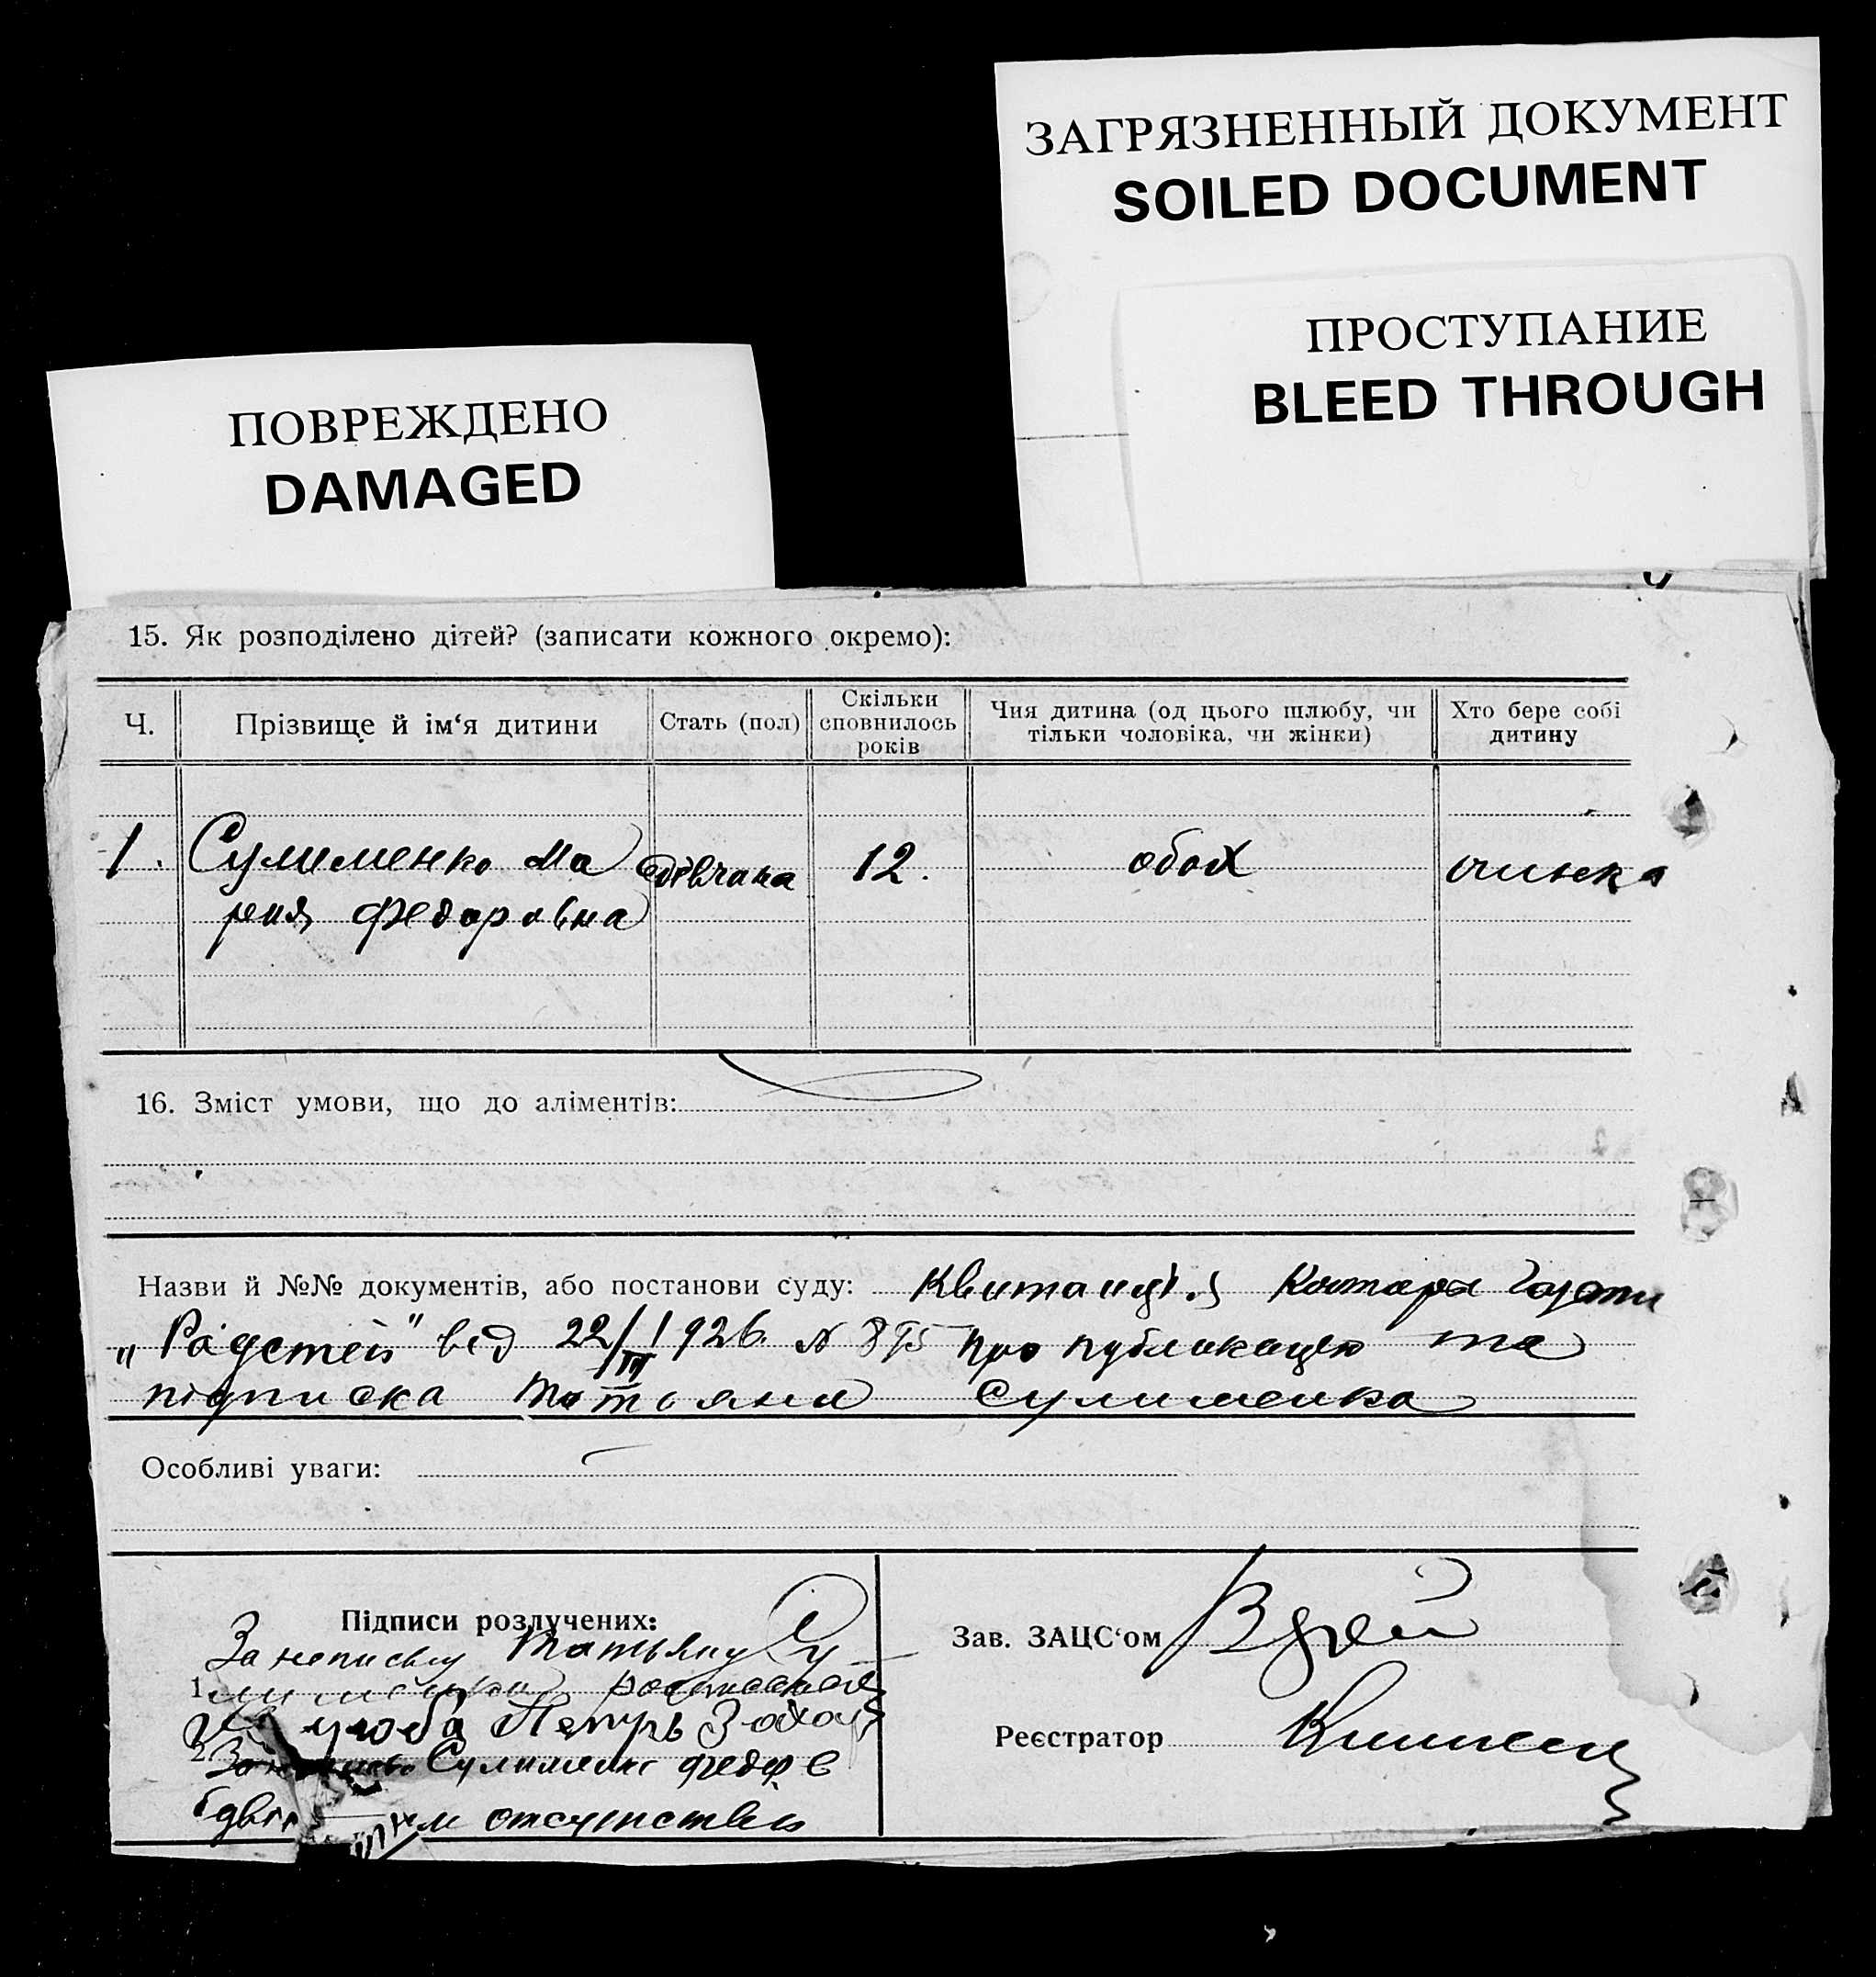 ЗАГРЯЗНЕННЫЙ ДОКУМЕНТ
SOILED DOCUMENT
ПРОСТУПАНИЕ
BLEED THROUGH
ПОВРЕЖДЕНО
DAMAGED
15. Як розподілено дітей? (записати кожного окремо):
Ч. Прізвище й ім‘я дитини Стать (пол) Скільки сповнилось років Чия дитина (од цього шлюбу, чи тільки чоловіка, чи жінки) Хто бере собі дитину
1. Сулименко Ма дівчина 12. обох
рия Федоровна
16. Зміст умови, що до аліментів:
Назви й №№ документів, або постанови суду: Квитанція
від 22/III 1926. № про публикацію та
підписка Татьяни Сулименко
Особливі уваги:
Підписи розлучених:
За неписьму Татьяну Су
1.
Петръ
2. Сулименко Федор в
отсутствии
Зав. ЗАЦС‘ом
Реєстратор